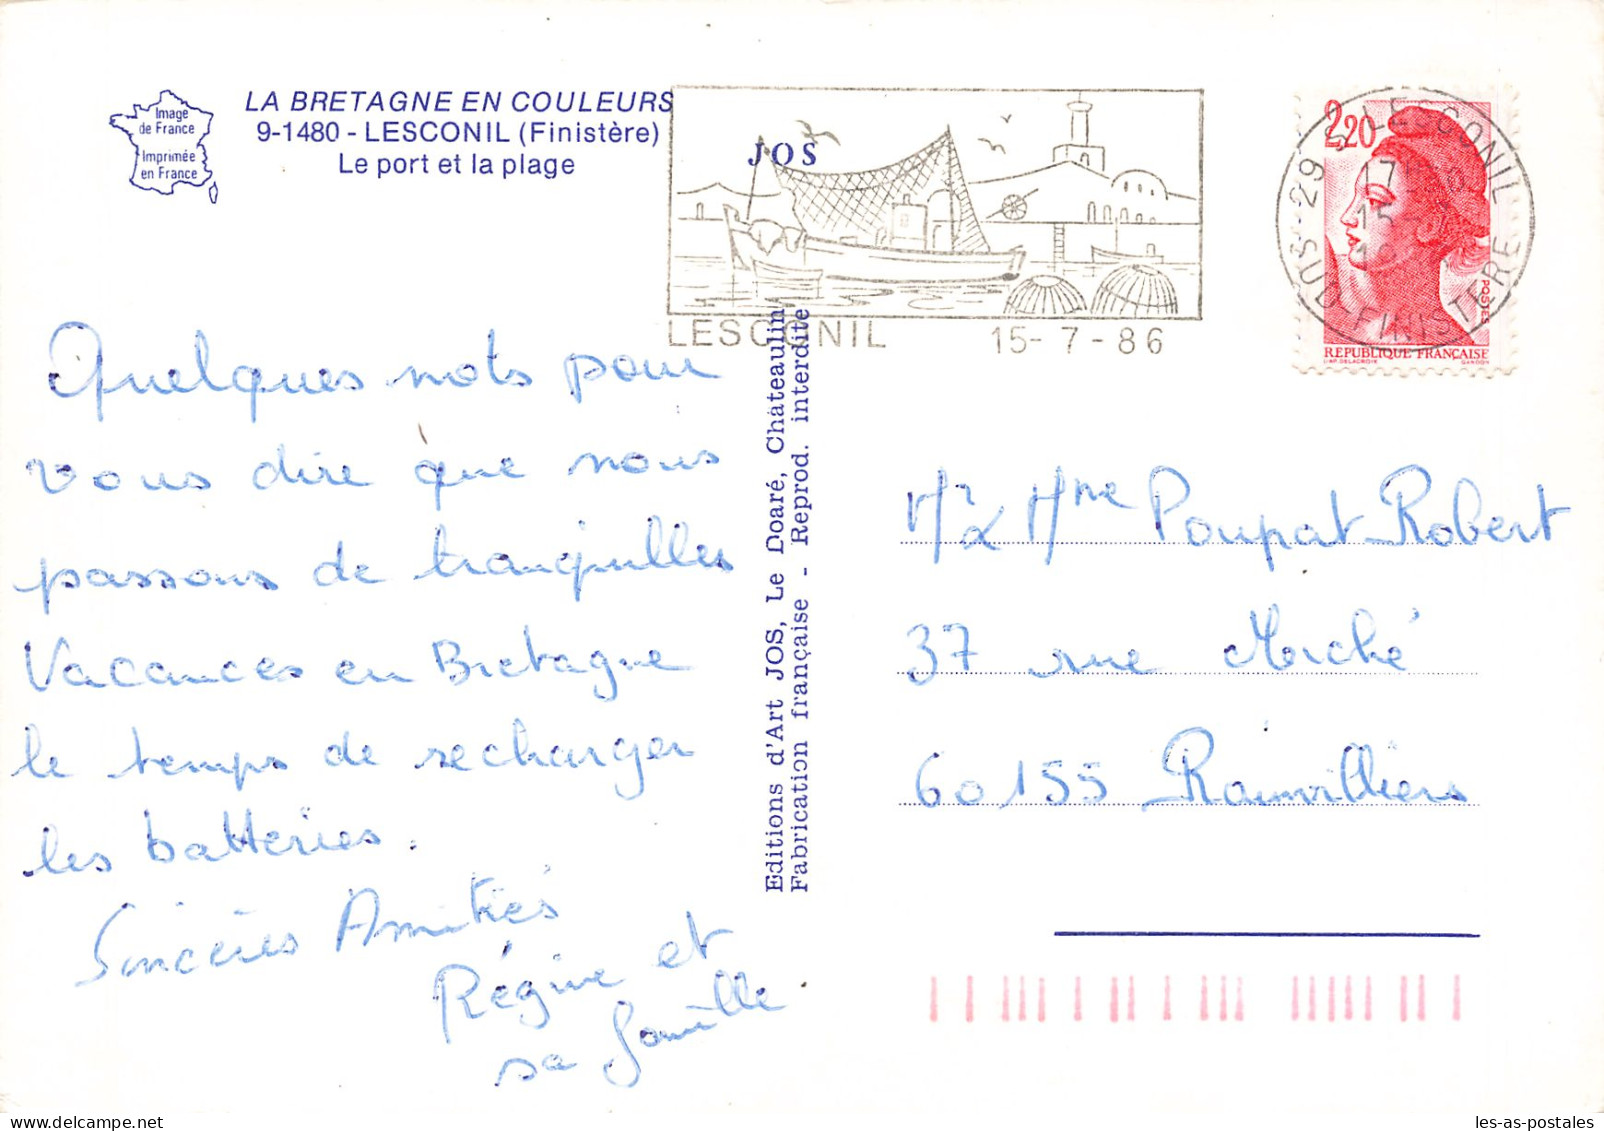 Image
de France
Imprimée
en France
LA BRETAGNE EN COULEURS
9-1480 - LESCONIL (Finistère)
Le port et la plage
JOS
LESCONIL 15-7-86
29 LESCONIL
17H
15-7
19
SUD-FINISTERE
2,20
POSTES
REPUBLIQUE FRANÇAISE
D'AP. DELACROIX GANDON
Quelques mots pour
vous dire que nous
passons de tranquilles
Vacances en Bretagne
le temps de recharger
les batteries.
Sincères Amitiés
Régine et
sa famille
Editions d'Art JOS, Le Doaré, Châteaulin
Fabrication française - Reprod. interdite
Mr & Mme Poupat Robert
37 rue Merché
60155 Rainvilliers
les-as-postales